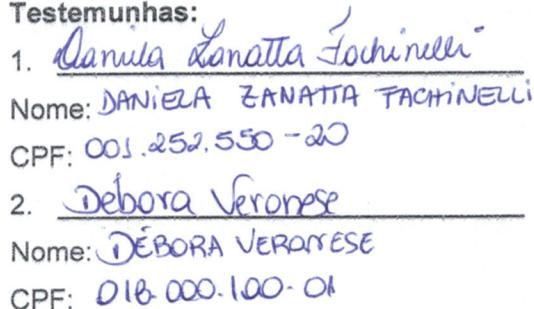 Testemunhas:
1. Daniela Zanatta Fachinelli
Nome: DANIELA ZANATTA FACHINELLI
CPF: 001.252.550-20
2. Débora Veronese
Nome: DÉBORA VERONESE
CPF: 018.000.100-01